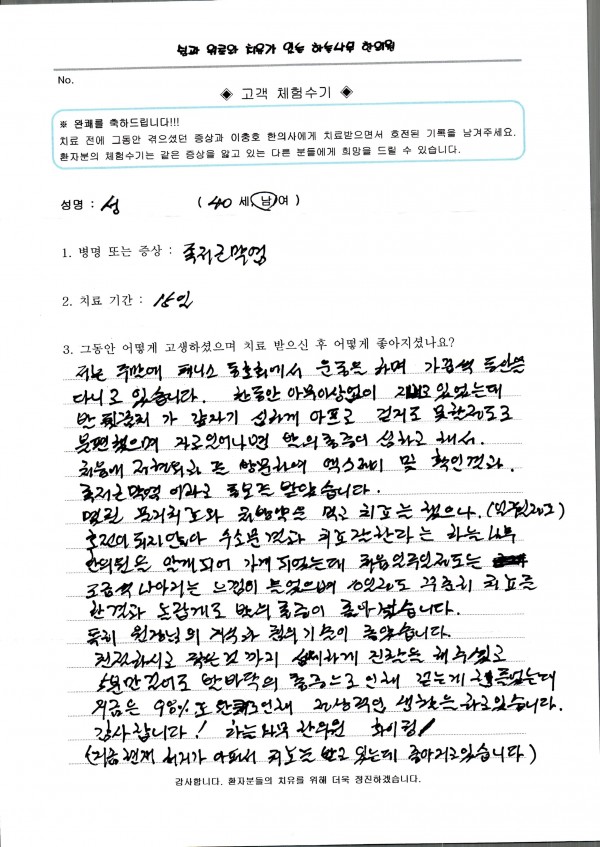 No.
◈ 고객 체험수기 ◈
※ 완쾌를 축하드립니다!!!
치료 전에 그동안 겪으셨던 증상과 이충호 한의사에게 치료받으면서 호전된 기록을 남겨주세요.
환자분의 체험수기는 같은 증상을 앓고 있는 다른 분들에게 희망을 드릴 수 있습니다.
성명 : 성 ( 40 세, 남/여 )
1. 병명 또는 증상 : 족저근막염
2. 치료 기간 : 15일
3. 그동안 어떻게 고생하셨으며 치료 받으신 후 어떻게 좋아지셨나요?
저는 주말에 테니스 동호회에서 운동을 하며 가끔씩 등산을
다니고 있습니다. 한동안 아무이상없이 지내고 있었는데
반 갑자기 심하게 아프고 걷지도 못할정도로
불편했으며 자고일어나면 발의 통증이 심하고 해서.
처음에 정형외과 를 방문하여 엑스레이 및 확인결과.
족저근막염 이라고 통보를 받았습니다.
물리치료와 처방약을 먹고 치료는 했으나.
호전이 되지않아 수소문결과 치료잘한다는 하늘나무
한의원을 알게되어 가게되었는데 처음 일주일정도는
조금씩 나아지는 느낌이 들었으며 정도 꾸준히 치료를
한결과 놀랍게도 발의 통증이 좋아졌습니다.
특히 원장님의 지식과 침의기술이 좋았습니다.
친절하시고 작은것 까지 섬세하게 진찰을 해주셨고
5분만걸어도 발바닥의 통증으로 인해 걷는게 힘들었는데
지금은 98%도 완쾌로인해 정상적인 생활을 하고있습니다.
감사합니다! 하늘나무 한의원 화이팅!
(지금현재 허리가 아파서 치료를 받고 있는데 좋아지고있습니다)
감사합니다. 환자분들의 치유를 위해 더욱 정진하겠습니다.